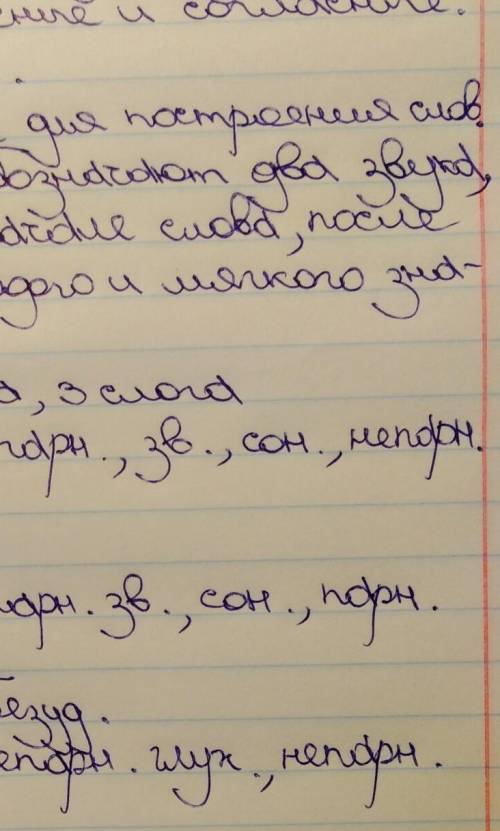 ение и согласные.
для построения слов.
бозначают два звука,
ачале слова, после
дого и мягкого зна-
а, 3 слога
парн., зв., сон., непарн.
парн. зв., сон., парн.
безуд.
епарн. глух., непарн.